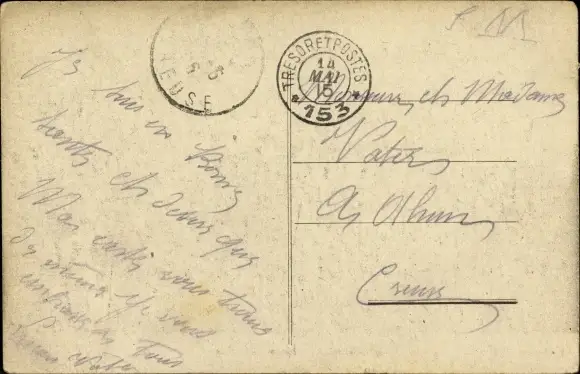 F M
5
5
MEUSE
TRESOR ET POSTES
14
MAI
15
* 153 *
Monsieur et Madame
Vater
A Ahun
Creuse
Je suis en Bonne
santé et desire que
Ma carte vous trouve
de même Je vous
embrasse tous